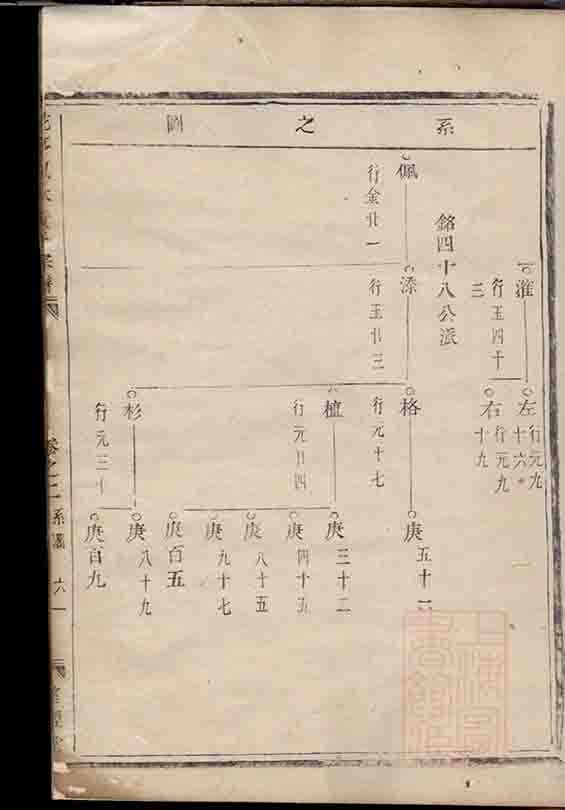 系之圖
淮
行玉四十三
左
行元九十六
右
行元九十九
銘四十八公派
佩
行金廿一
漆
行玉廿三
格
行元十七
庚五十一
植
行元廿四
庚三十二
庚四十五
庚八十五
庚九十七
庚百五
杉
行元三十
庚八十九
庚百九
卷之二
系圖
六